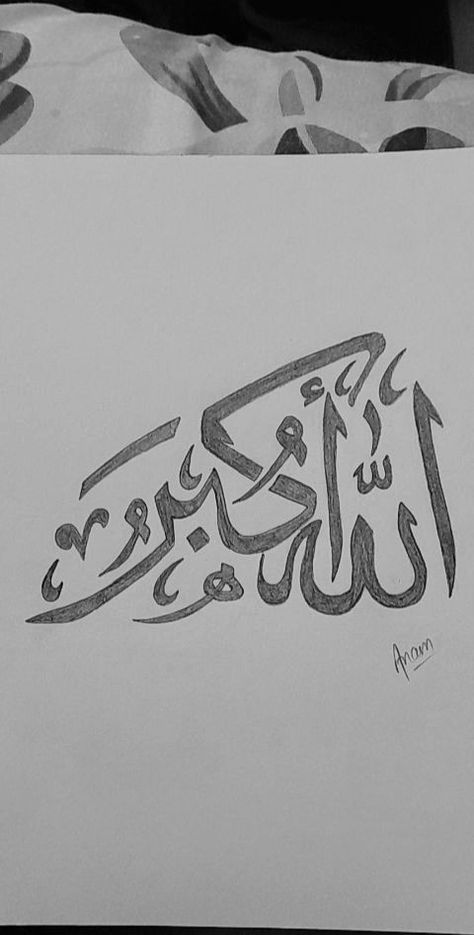 اللّٰه أكبر
Anam